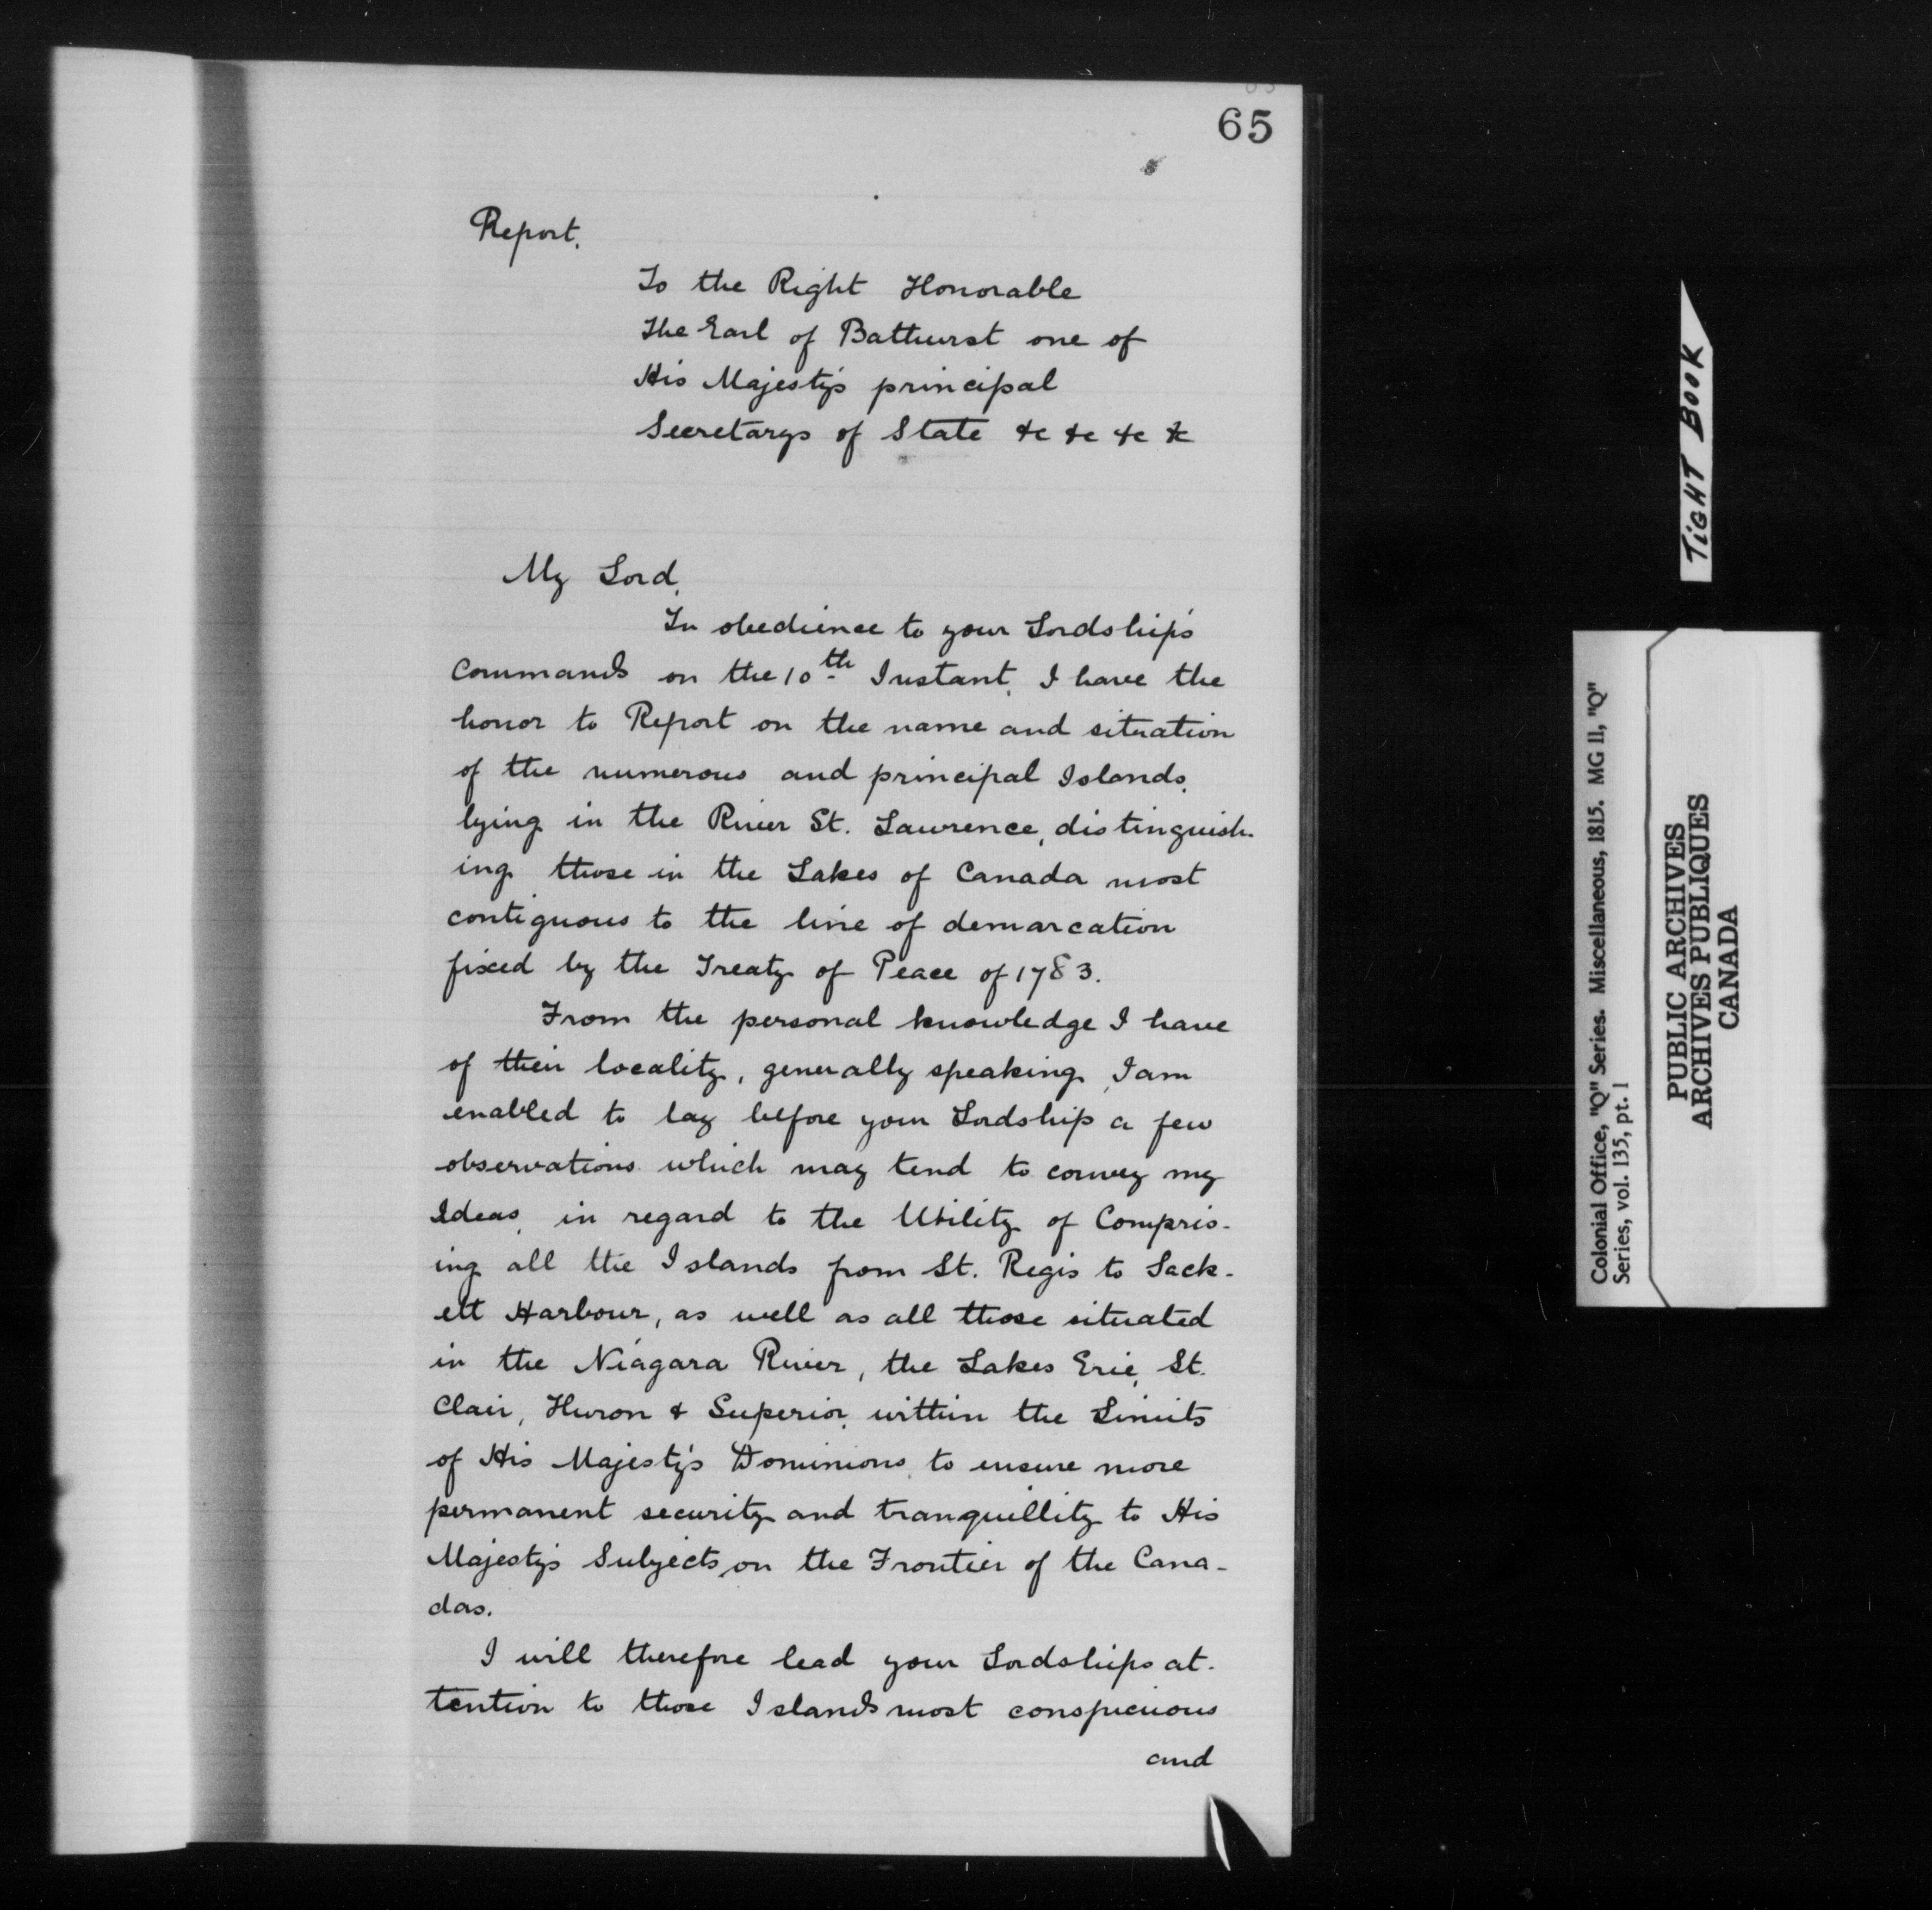 65
Report.
To the Right Honorable
The Earl of Bathurst one of
His Majesty's principal
Secretarys of State &c &c &c &c
My Lord,
In obedience to your Lordship's
Commands on the 10th Instant, I have the
honor to Report on the name and situation
of the numerous and principal Islands,
lying in the River St. Lawrence, distinguish-
ing those in the Lakes of Canada most
contiguous to the line of demarcation
fixed by the Treaty of Peace of 1783.
From the personal knowledge I have
of their locality, generally speaking, I am
enabled to lay before your Lordship a few
observations which may tend to convey my
Ideas, in regard to the Utility of Compris-
ing all the Islands from St. Regis to Sack-
ett Harbour, as well as all those situated
in the Niagara River, the Lakes Erie, St.
Clair, Huron & Superior, within the Limits
of His Majesty's Dominions, to ensure more
permanent security and tranquillity to His
Majesty's Subjects, on the Frontier of the Cana-
das.
I will therefore lead your Lordships at-
tention to those Islands most conspicuous
and
TIGHT BOOK
Colonial Office, "Q" Series. Miscellaneous, 1815. MG 11, "Q"
Series, vol. 135, pt. 1
PUBLIC ARCHIVES
ARCHIVES PUBLIQUES
CANADA